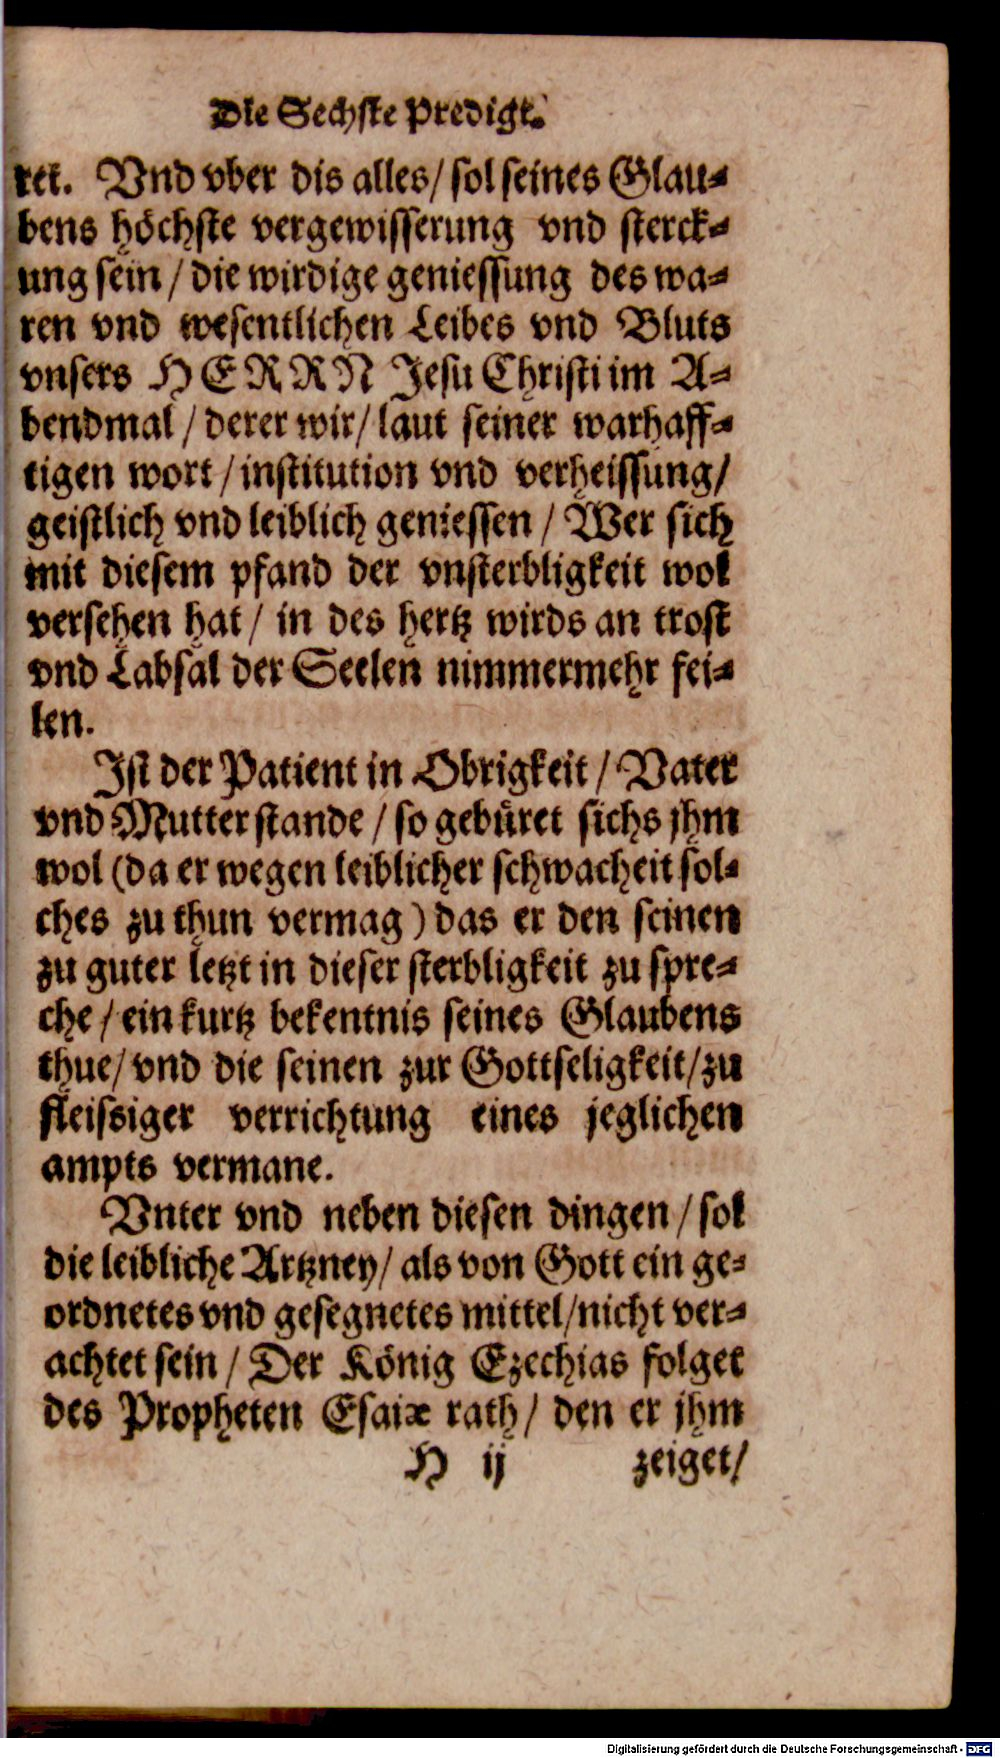 Die Sechste Predigt.
ret. Vnd vber dis alles/ sol seines Glau-
bens höchste vergewisserung vnd sterck-
ung sein / die wirdige geniessung des wa-
ren vnd wesentlichen Leibes vnd Bluts
vnsers HERRN Jesu Christi im A-
bendmal / derer wir/ laut seiner warhaff-
tigen wort / institution vnd verheissung/
geistlich vnd leiblich geniessen / Wer sich
mit diesem pfand der vnsterbligkeit wol
versehen hat / in des hertz wirds an trost
vnd Labsal der Seelen nimmermehr fei-
len.
Ist der Patient in Obrigkeit / Vater
vnd Mutter stande / so gebüret sichs jhm
wol (da er wegen leiblicher schwacheit sol-
ches zu thun vermag) das er den seinen
zu guter letzt in dieser sterbligkeit zu spre-
che / ein kurtz bekentnis seines Glaubens
thue/ vnd die seinen zur Gottseligkeit/ zu
fleissiger verrichtung eines jeglichen
ampts vermane.
Vnter vnd neben diesen dingen / sol
die leibliche Artzney/ als von Gott ein ge-
ordnetes vnd gesegnetes mittel/ nicht ver-
achtet sein / Der König Ezechias folget
des Propheten Esaiæ rath/ den er jhm
H ij zeiget/
Digitalisierung gefördert durch die Deutsche Forschungsgemeinschaft - DFG